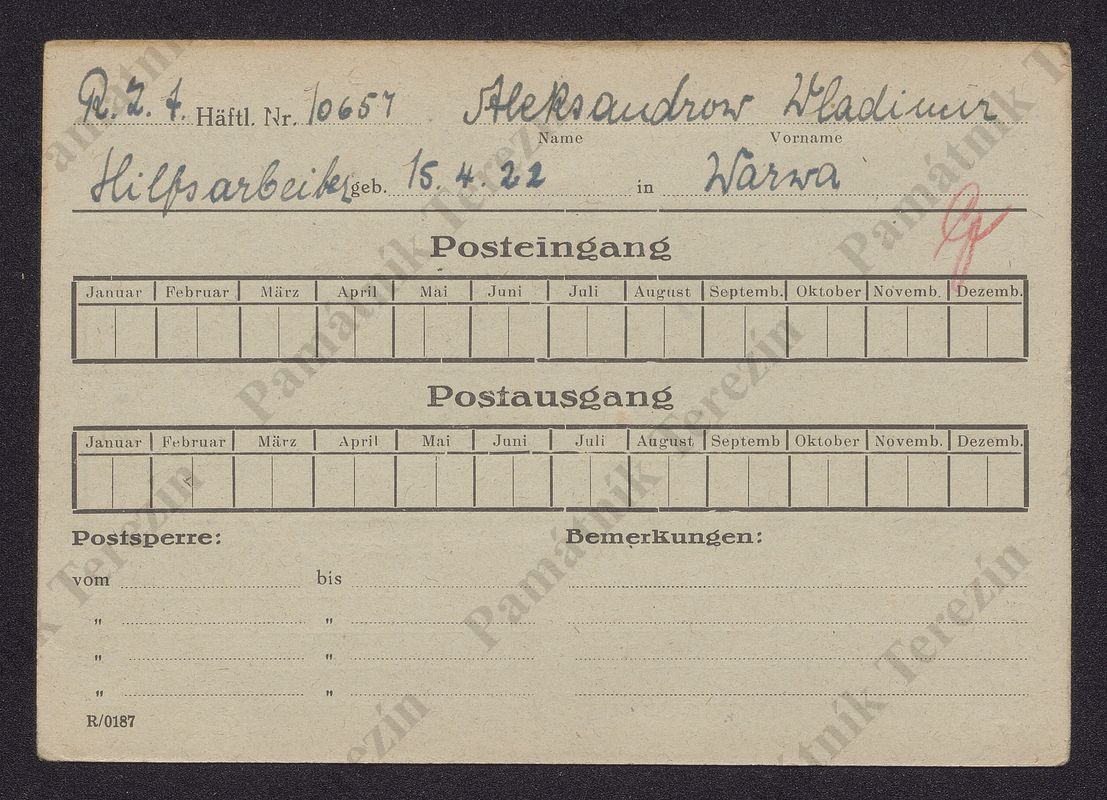 R. Z. A. Häftl. Nr. 10657 Aleksandrow Wladimir
Name Vorname
Hilfsarbeiter geb. 15. 4. 22 in Warwa
Posteingang
Januar Februar März April Mai Juni Juli August Septemb. Oktober Novemb. Dezemb.
Postausgang
Januar Februar März April Mai Juni Juli August Septemb Oktober Novemb. Dezemb.
Postsperre: Bemerkungen:
vom bis
" "
" "
" "
R/0187
Památník Terezín